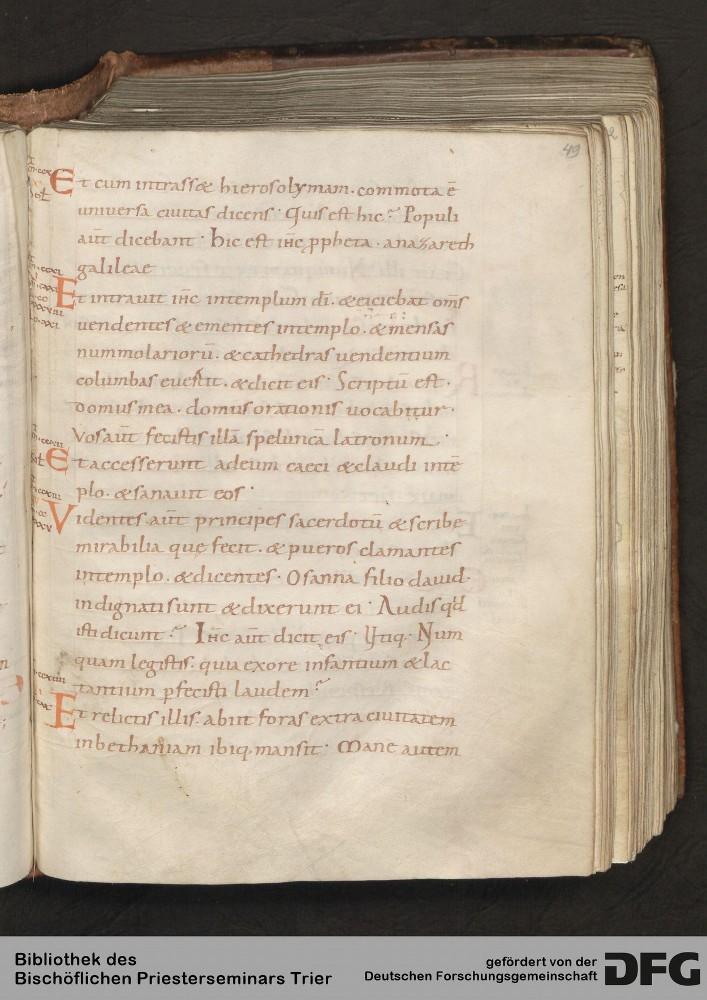 49
Et cum intrass& hierosolymam · commota ē
universa ciuitas dicens · Quis est hic · Populi
aūt dicebant · hic est ihc ppheta · anazareth
galileae
Et intrauit ihc intemplum dī · & eiciebat oms
uendentes & ementes intemplo · & mensas
nummolariorū · & cathedras uendentium
columbas euertit · & dicit eis · Scriptū est ·
Domus mea · domus orationis uocabitur ·
Vos aūt fecistis illā speluncā latronum ·
Et accesserunt adeum caeci & claudi intē
plo · & sanauit eos ·
Videntes aūt principes sacerdotū & scribe
mirabilia quę fecit · & pueros clamantes
intemplo · & dicentes · Osanna filio dauid ·
indignati sunt & dixerunt ei · Audis qd
isti dicunt · Ihc aūt dicit eis · Utiq · Num
quam legistis · quia exore infantium & lac
tantium pfecisti laudem
Et relictis illis · abiit foras extra ciuitatem
inbethaniam ibiq · mansit · Mane autem
Bibliothek des
Bischöflichen Priesterseminars Trier
gefördert von der
Deutschen Forschungsgemeinschaft
DFG